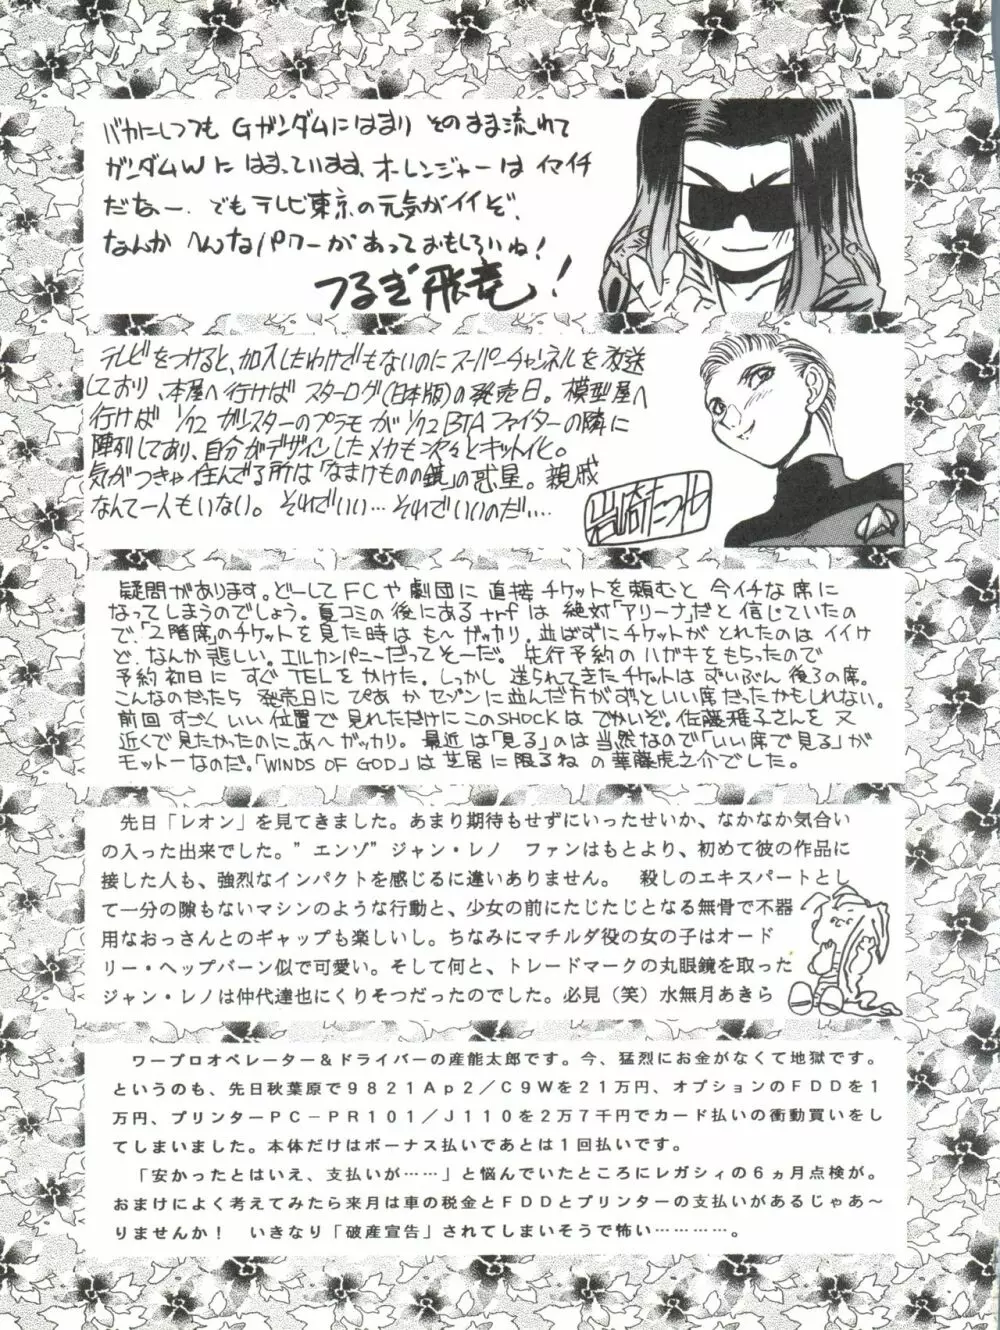 バカにしつつも Gガンダムにはまり そのまま流れて
ガンダムWに はまっています、オーレンジャーは イマイチ
だなー、でもテレビ東京の元気がイイぞ、
なんか へんなパワーがあっておもしろいね！
つるぎ飛竜！
テレビをつけると、加入したわけでもないのに スーパーチャンネルを放送
しており、本屋へ行けば スターログ(日本版)の発売日。模型屋へ
行けば 1/72 ガンスターのプラモが 1/72 BTA ファイターの隣に
陣列しており、自分がデザインしたメカも次々とキット化。
気がつきゃ住んでる所は「なまけものの鏡」の惑星。親戚
なんて一人もいない。それでいい…それでいいのだ…
岩崎たつや
疑問があります。どーしてFCや劇団に直接チケットを頼むと今イチな席に
なってしまうのでしょう。夏コミの後にあるtrfは絶対「アリーナ」だと信じていたの
で、「2階席」のチケットを見た時はも〜ガッカリ。並ばずにチケットがとれたのはイイけ
ど、なんか悲しい。エルカンパニーだってそ〜だ。先行予約のハガキをもらったので
予約初日にすぐTELをかけた。しっかし送られてきたチケットはずいぶん後ろの席。
こんなのだったら発売日にぴあかセゾンに並んだ方がずっといい席だったかもしれない。
前回すごくいい位置で見れただけにこのSHOCKはでかいぞ。佐藤雅子さんを又
近くで見たかったのに、あ〜ガッカリ。最近は「見る」のは当然なので「いい席で見る」が
モットーなのだ。「WINDS OF GOD」は芝居に限るねの華藤虎之介でした。
先日「レオン」を見てきました。あまり期待もせずにいったせいか、なかなか気合い
の入った出来でした。”エンゾ”ジャン・レノ　ファンはもとより、初めて彼の作品に
接した人も、強烈なインパクトを感じるに違いありません。　殺しのエキスパートとし
て一分の隙もないマシンのような行動と、少女の前にたじたじとなる無骨で不器
用なおっさんとのギャップも楽しいし。ちなみにマチルダ役の女の子はオード
リー・ヘップバーン似で可愛い。そして何と、トレードマークの丸眼鏡を取った
ジャン・レノは仲代達也にくりそつだったのでした。必見（笑）水無月あきら
ワープロオペレーター＆ドライバーの産能太郎です。今、猛烈にお金がなくて地獄です。
というのも、先日秋葉原で９８２１Ａｐ２／Ｃ９Ｗを２１万円、オプションのＦＤＤを１
万円、プリンターＰＣ－ＰＲ１０１／Ｊ１１０を２万７千円でカード払いの衝動買いをし
てしまいました。本体だけはボーナス払いであとは１回払いです。
「安かったとはいえ、支払いが……」と悩んでいたところにレガシィの６ヵ月点検が。
おまけによく考えてみたら来月は車の税金とＦＤＤとプリンターの支払いがあるじゃあ〜
りませんか！　いきなり「破産宣告」されてしまいそうで怖い…………。